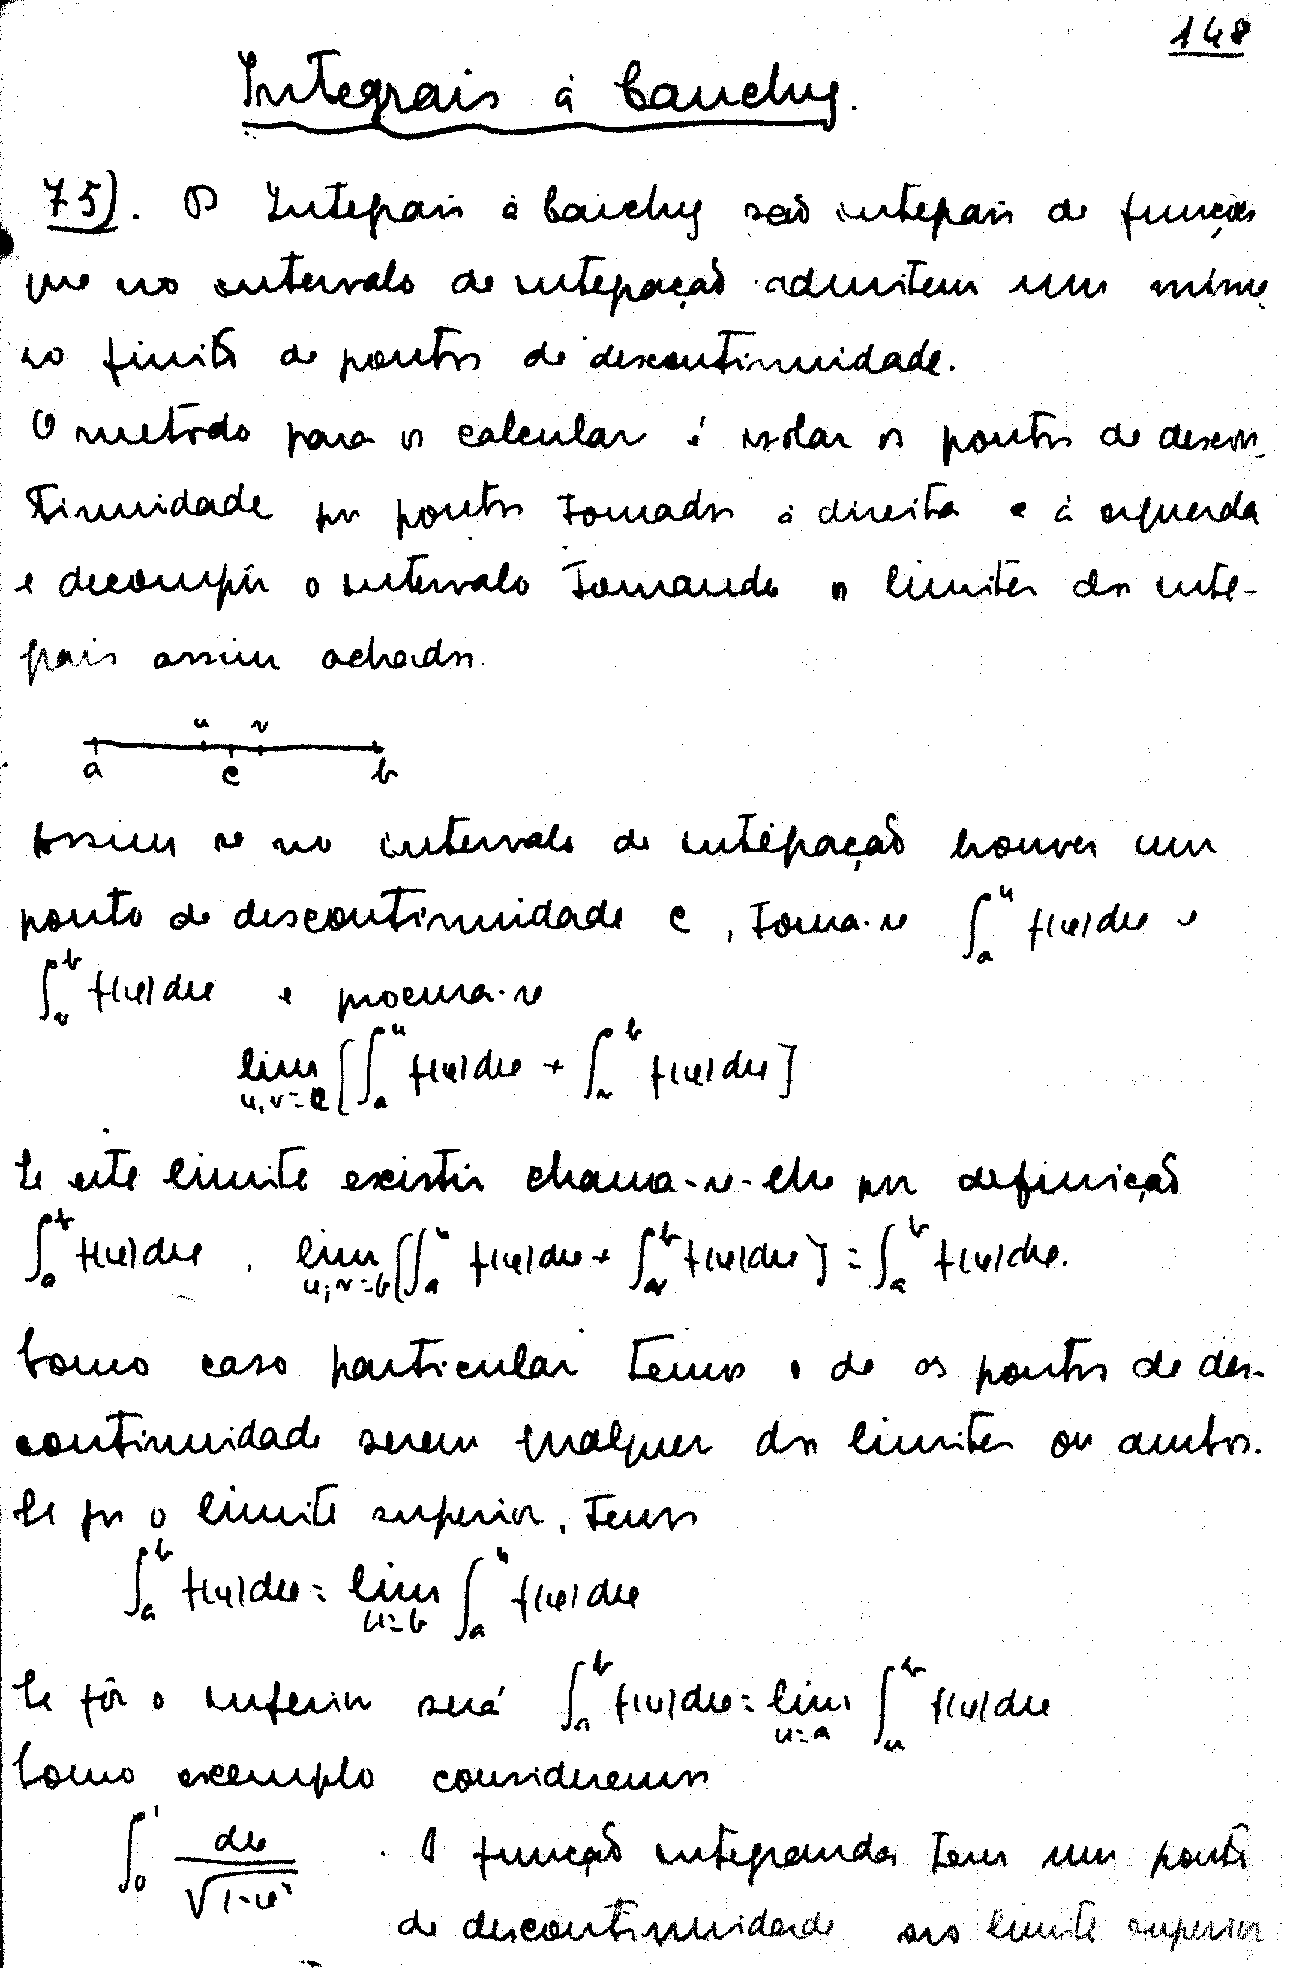 148
Integrais à Cauchy.
75). Os Integrais à Cauchy são integrais de funções
que no intervalo de integração admitem um núme
ro finito de pontos de descontinuidade.
O metodo para os calcular é isolar os pontos de descon
tinuidade por pontos tomados à direita e à esquerda
e decompôr o intervalo tomando os limites dos inte-
grais assim achados.
u v
a c b
Assim se no intervalo de integração houver um
ponto de descontinuidade c, toma-se ∫_a^u f(x)dx e
∫_v^b f(x)dx e procura-se
lim_{u,v=c} [∫_a^u f(x)dx + ∫_v^b f(x)dx]
Se este limite existir chama-se-lhe por definição
∫_a^b f(x)dx, lim_{u,v=b} [∫_a^u f(x)dx + ∫_v^b f(x)dx] = ∫_a^b f(x)dx.
Como caso particular temos o de os pontos de des-
continuidade serem qualquer dos limites ou ambos.
Se for o limite superior, temos
∫_a^b f(x)dx = lim_{u=b} ∫_a^u f(x)dx
Se fôr o inferior será ∫_a^b f(x)dx = lim_{u=a} ∫_u^b f(x)dx
Como exemplo consideremos
∫_0^1 dx/√(1-x²) . A função integranda tem um ponto
de descontinuidade no limite superior